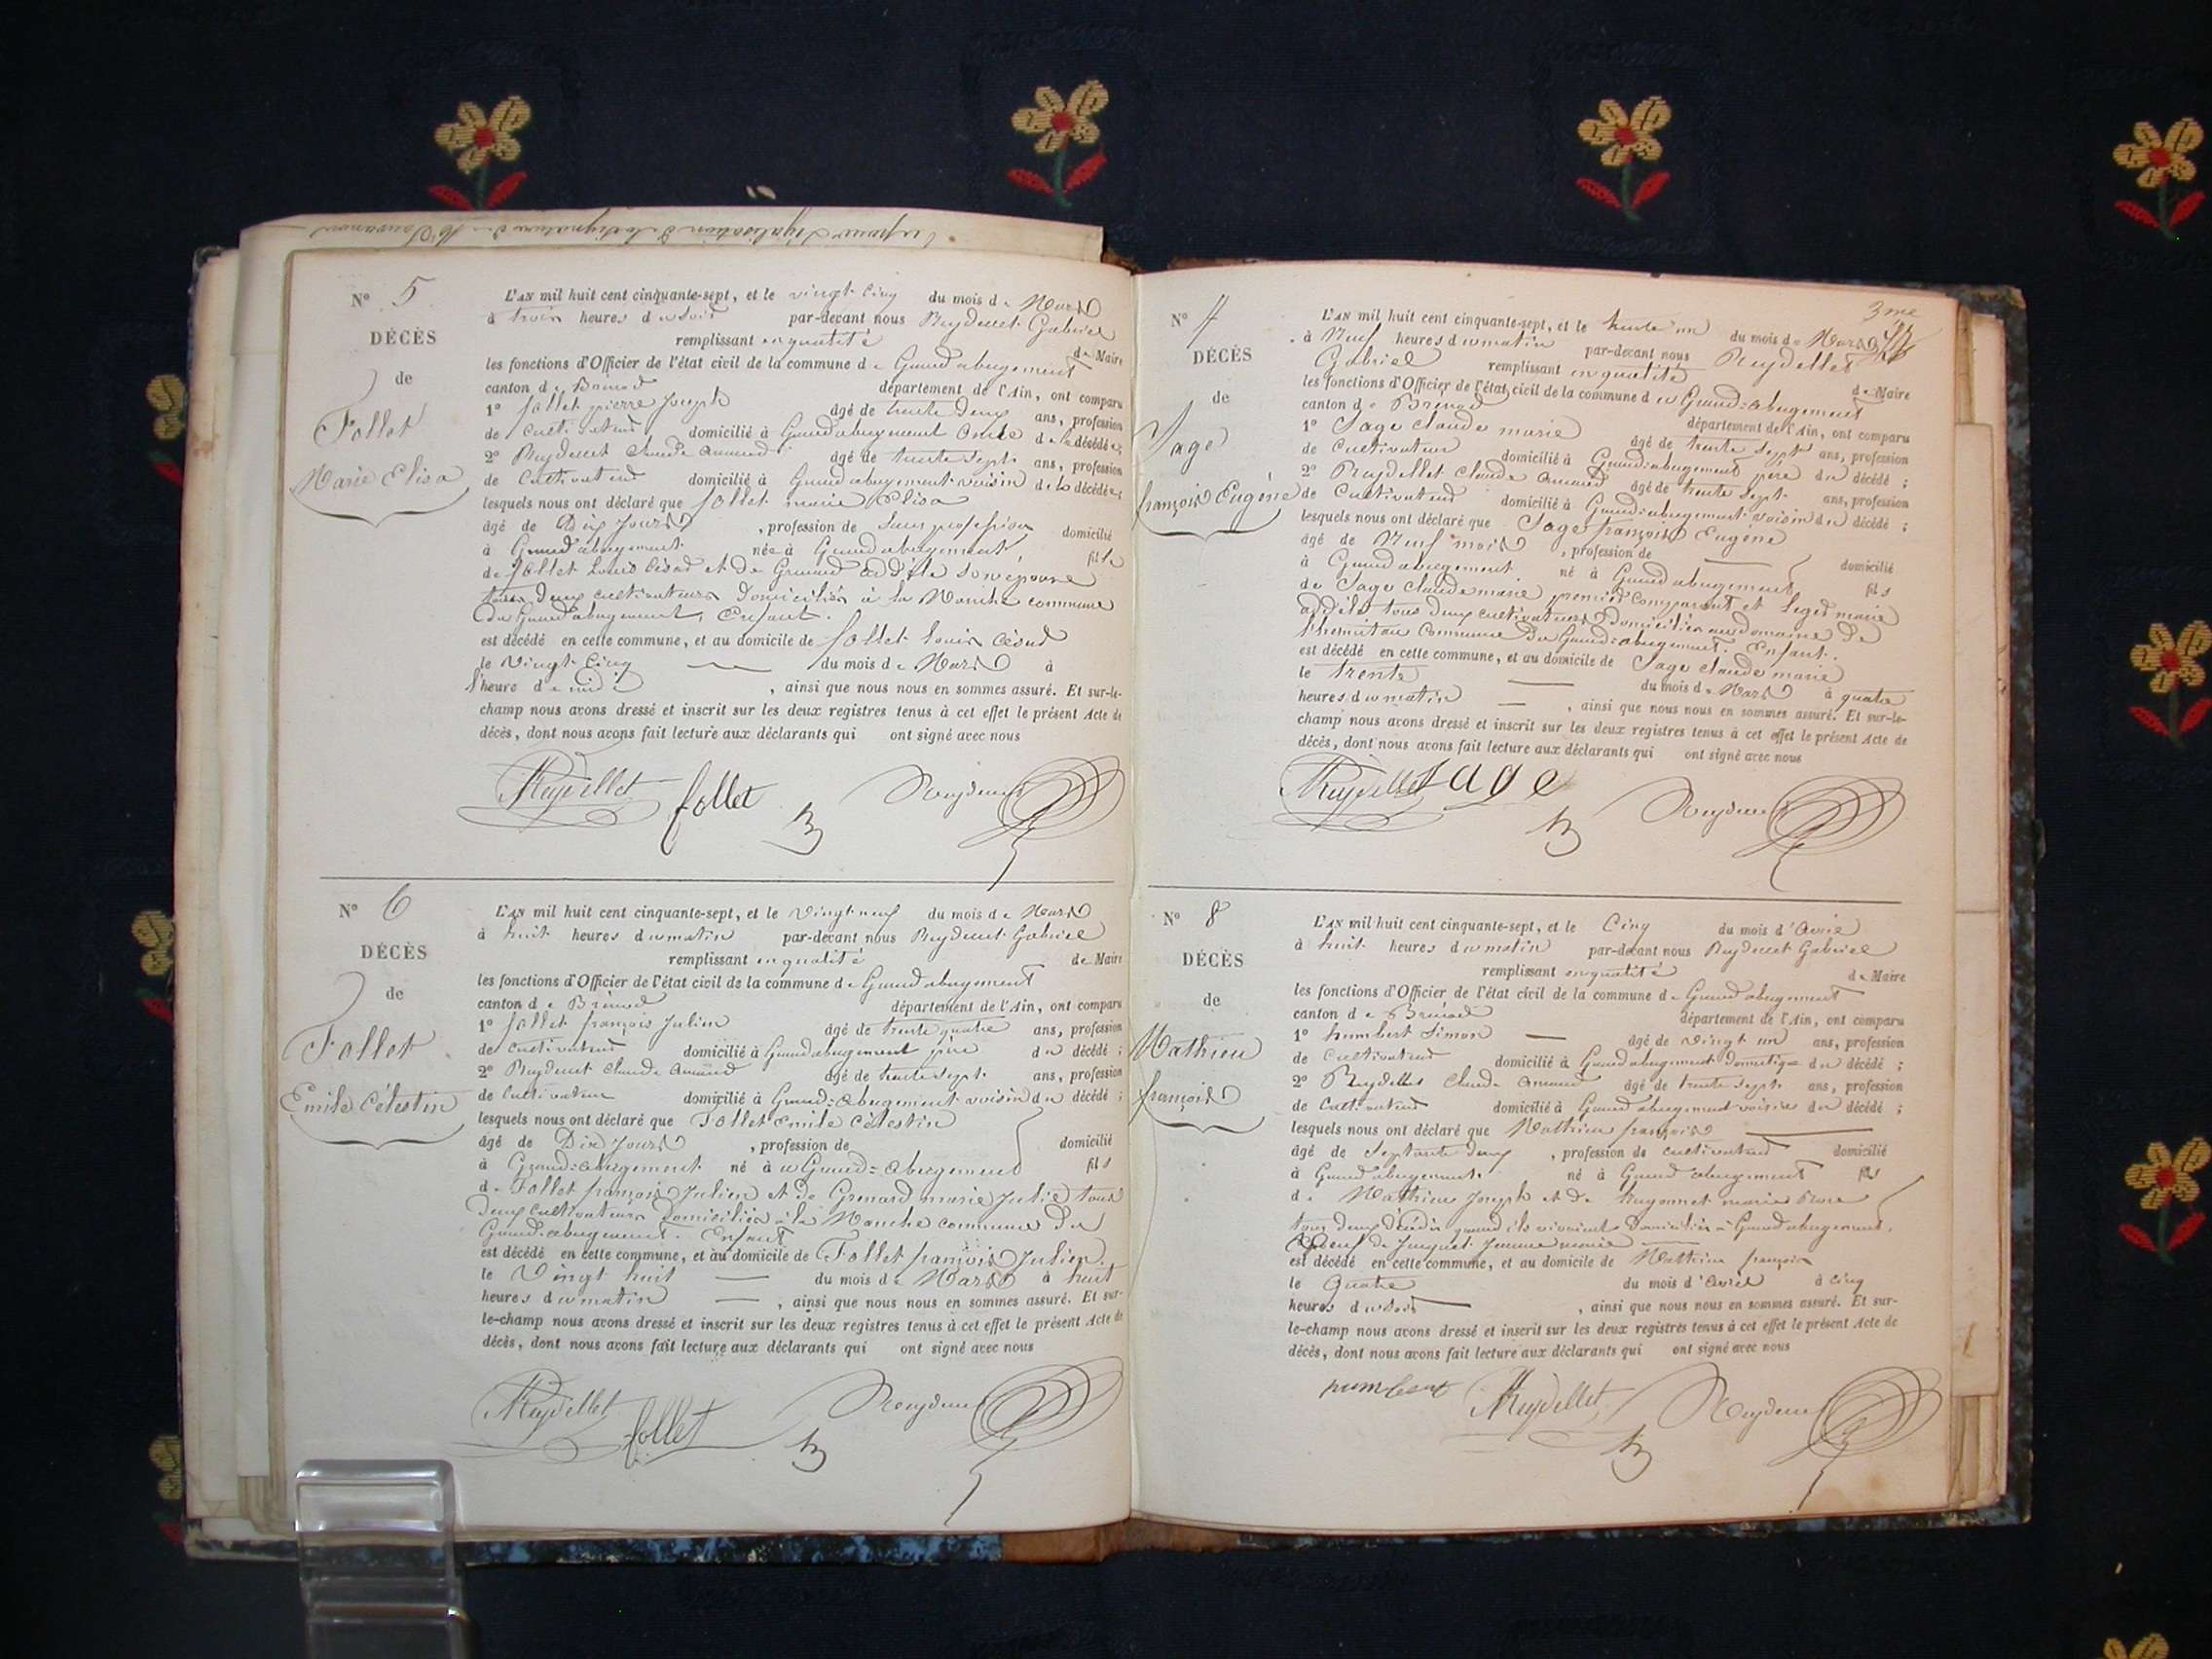 N° 5
DÉCÈS
de
Follet
Marie Elisa
L'AN mil huit cent cinquante-sept, et le vingt cinq du mois de Mars
à trois heures du soir par-devant nous Reydellet Gabriel
remplissant en qualité de Maire
les fonctions d'Officier de l'état civil de la commune de Grand abergement
canton de Brénod département de l'Ain, ont comparu
1° follet pierre Joseph âgé de trente deux ans, profession
de cultivateur domicilié à Grand abergement oncle de la décédée
2° Reydellet Claude Amand âgé de trente sept ans, profession
de Cultivateur domicilié à Grand abergement voisin de la décédée;
lesquels nous ont déclaré que follet marie Elisa
âgé de Dix Jours, profession de sans profession domicilié
à Grand abergement née à Grand abergement fille
de follet Louis César et de son épouse
tous deux cultivateurs Domiciliés à la Manche commune
du Grand abergement, Enfant.
est décédé en cette commune, et au domicile de follet Louis César
le Vingt Cinq du mois de Mars à
l'heure de midi, ainsi que nous nous en sommes assuré. Et sur-le-
champ nous avons dressé et inscrit sur les deux registres tenus à cet effet le présent Acte de
décès, dont nous avons fait lecture aux déclarants qui ont signé avec nous
Reydellet follet Reydellet
N° 6
DÉCÈS
de
Follet
Emile Célestin
L'AN mil huit cent cinquante-sept, et le vingt neuf du mois de Mars
à huit heures du matin par-devant nous Reydellet Gabriel
remplissant en qualité de Maire
les fonctions d'Officier de l'état civil de la commune de Grand abergement
canton de Brénod département de l'Ain, ont comparu
1° follet françois Julien âgé de trente quatre ans, profession
de cultivateur domicilié à Grand abergement père du décédé;
2° Reydellet Claude Amand âgé de trente sept ans, profession
de Cultivateur domicilié à Grand=abergement voisin du décédé;
lesquels nous ont déclaré que Follet Emile Célestin
âgé de Dix Jours, profession de domicilié
à Grand=abergement né à u Grand=abergement fils
de Follet françois Julien et de Grenard marie Julie tous
Deux cultivateurs Domiciliés à la Manche commune du
Grand=abergement. Enfant
est décédé en cette commune, et au domicile de Follet françois Julien.
le Vingt huit du mois de Mars à huit
heures du matin, ainsi que nous nous en sommes assuré. Et sur-
le-champ nous avons dressé et inscrit sur les deux registres tenus à cet effet le présent Acte de
décès, dont nous avons fait lecture aux déclarants qui ont signé avec nous
Reydellet follet Reydellet
3me
N° 7
DÉCÈS
de
Sage
françois Eugène
L'AN mil huit cent cinquante-sept, et le trente un du mois de Mars
à Neuf heures du matin par-devant nous Reydellet
Gabriel remplissant en qualité de Maire
les fonctions d'Officier de l'état civil de la commune du Grand=abergement
canton de Brénod département de l'Ain, ont comparu
1° Sage Claude marie âgé de trente sept ans, profession
de Cultivateur domicilié à Grand=abergement père du décédé;
2° Reydellet Claude Amand âgé de trente sept ans, profession
de Cultivateur domicilié à Grand=abergement voisin du décédé;
lesquels nous ont déclaré que Sage françois Eugène
âgé de Neuf mois, profession de domicilié
à Grand abergement né à Grand abergement fils
de Sage Claude marie premier Comparant et Leger marie
addèle tous deux cultivateurs Domiciliés au domaine de
Commune du Grand=abergement. Enfant.
est décédé en cette commune, et au domicile de Sage Claude marie
le trente du mois de Mars à quatre
heures du matin, ainsi que nous nous en sommes assuré. Et sur-le-
champ nous avons dressé et inscrit sur les deux registres tenus à cet effet le présent Acte de
décès, dont nous avons fait lecture aux déclarants qui ont signé avec nous
Reydellet sage Reydellet
N° 8
DÉCÈS
de
Mathieu
françois
L'AN mil huit cent cinquante-sept, et le Cinq du mois d'Avril
à huit heures du matin par-devant nous Reydellet Gabriel
remplissant en qualité de Maire
les fonctions d'Officier de l'état civil de la commune de Grand abergement
canton de Brénod département de l'Ain, ont comparu
1° humbert Simon âgé de vingt un ans, profession
de Cultivateur domicilié à Grand abergement domestique du décédé;
2° Reydellet Claude Amand âgé de trente sept ans, profession
de Cultivateur domicilié à Grand abergement voisin du décédé;
lesquels nous ont déclaré que Mathieu françois
âgé de Septante deux, profession de cultivateur domicilié
à Grand abergement. né à Grand abergement fils
de Mathieu Joseph et de hugonnet marie
tous deux décédés quand ils vivaient Domiciliés à Grand abergement,
Veuf de Jeanne marie
est décédé en cette commune, et au domicile de Mathieu françois
le Quatre du mois d'Avril à cinq
heures du soir, ainsi que nous nous en sommes assuré. Et sur-
le-champ nous avons dressé et inscrit sur les deux registres tenus à cet effet le présent Acte de
décès, dont nous avons fait lecture aux déclarants qui ont signé avec nous
humbert Reydellet Reydellet